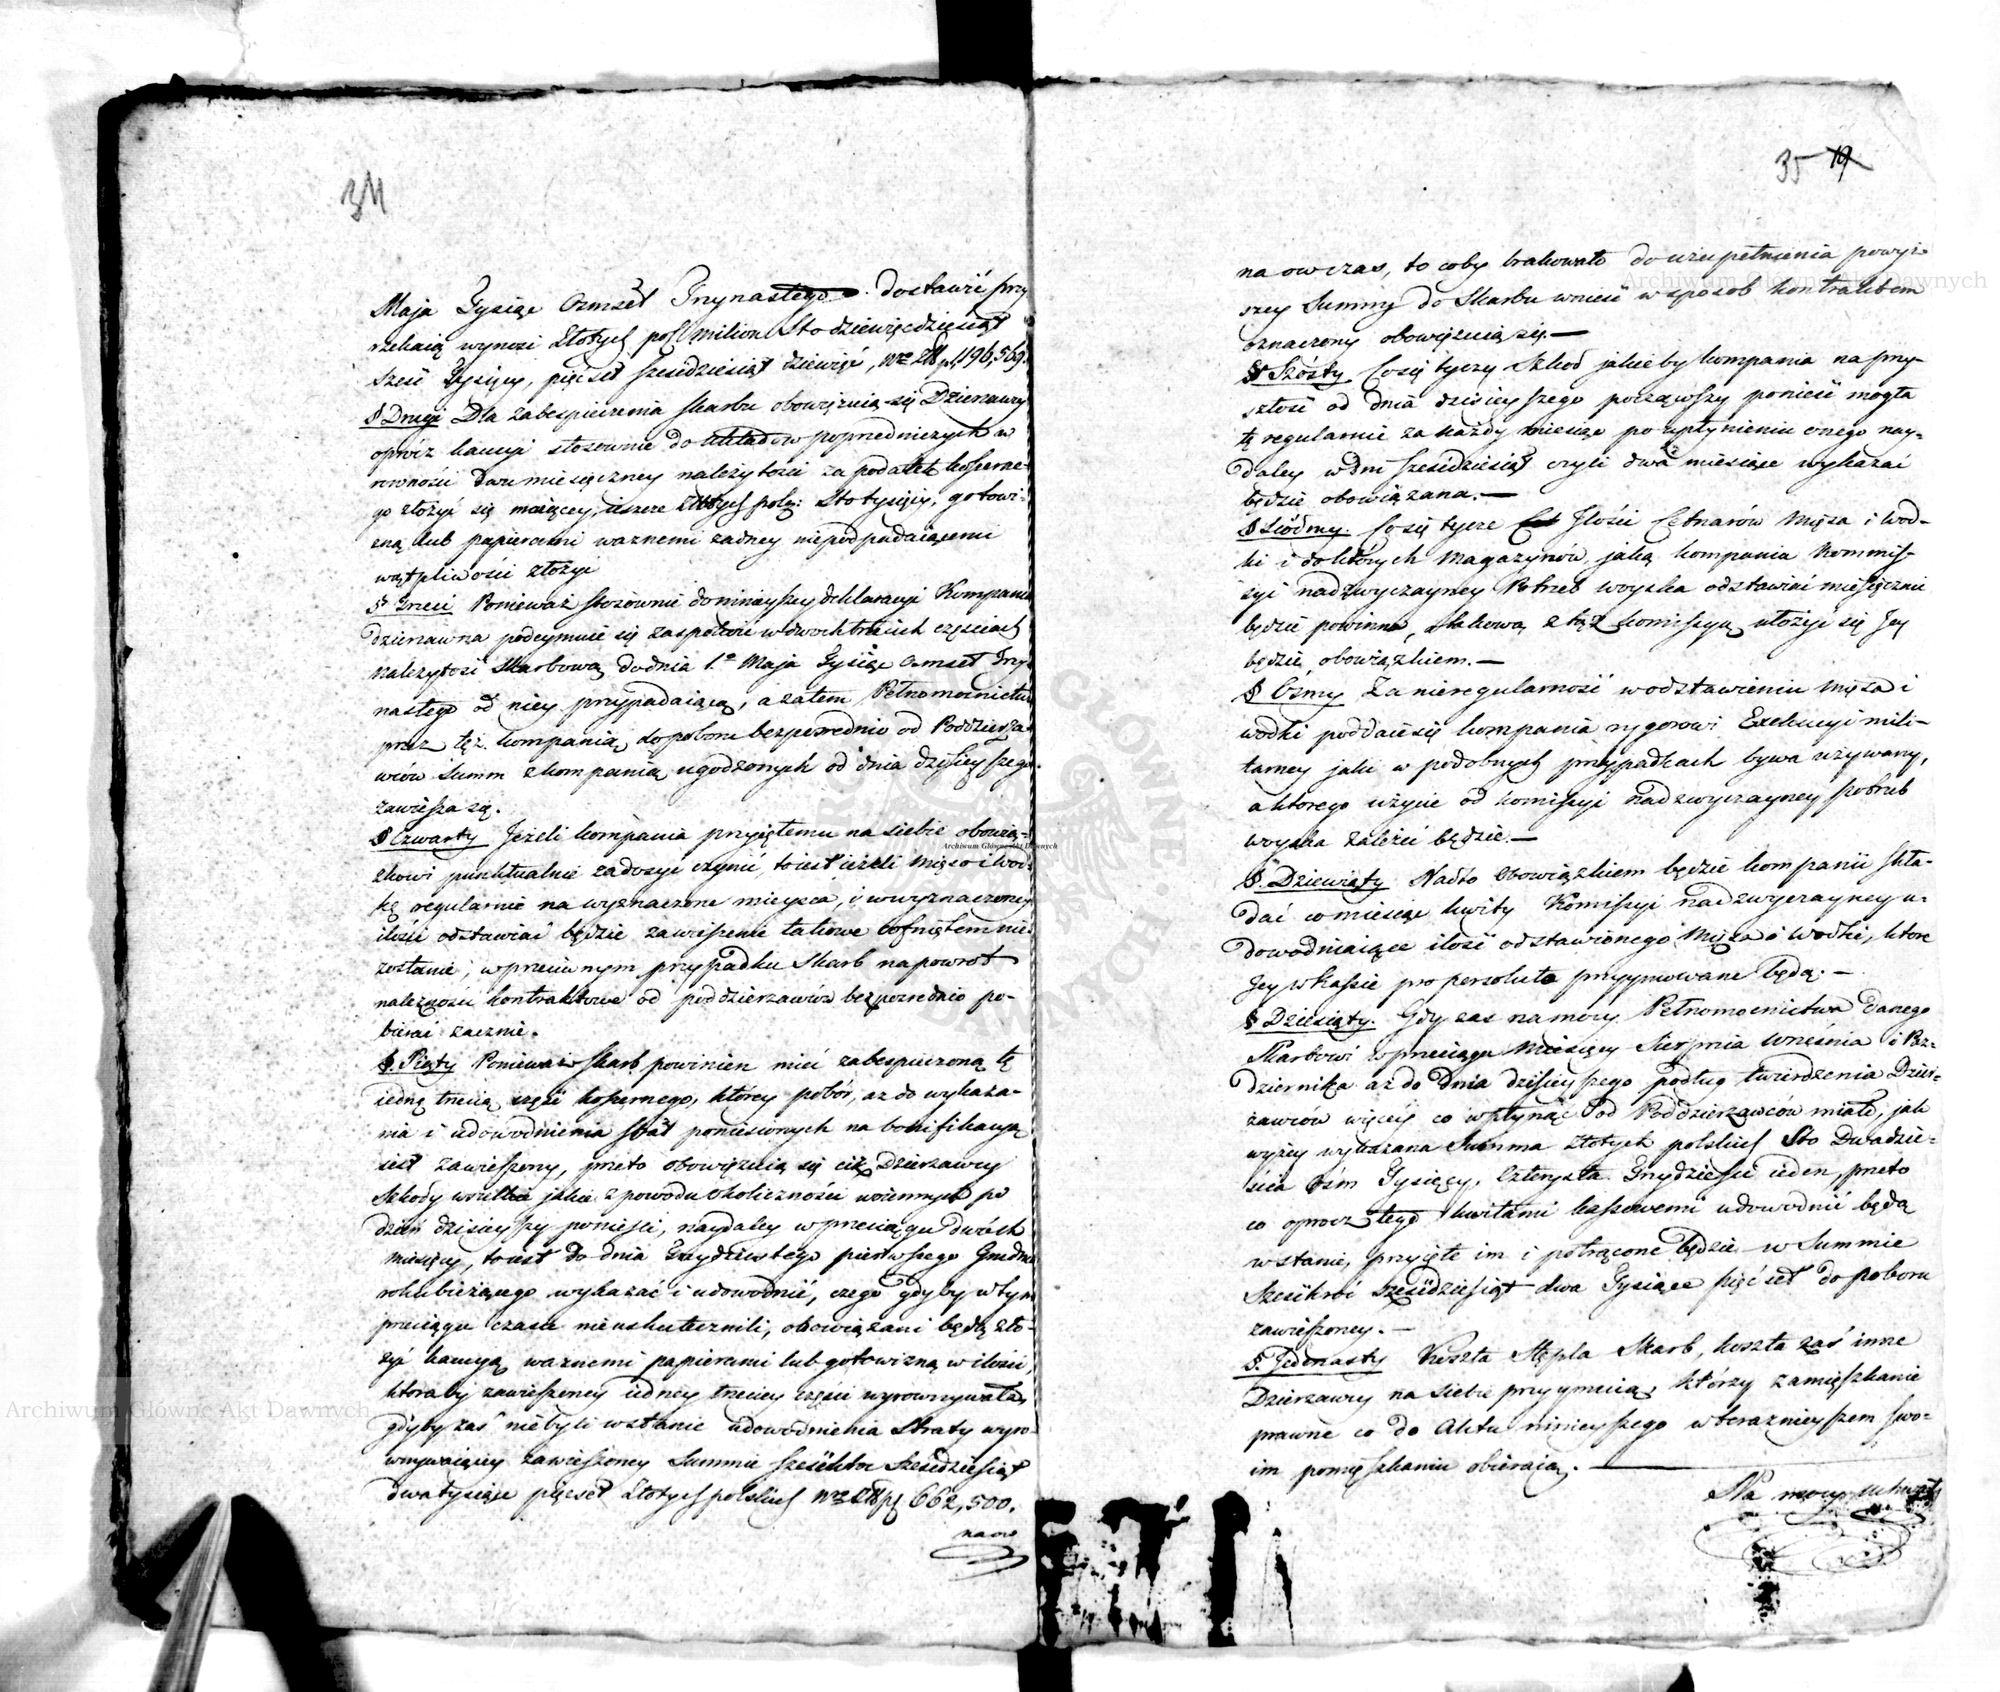 34
Maja Tysiąc Ozmset Trzynastego dostawić przy
rzekaią wynosi Złotych pol. milion Sto dziewięćdziesiąt
sześć Tysięcy, pięćset sześćdziesiąt dziewięć, 1196,569.
§ Drugi Dla zabespieczenia skarbu obowięzuią się Dzierzawcy
oprócz kaucyi stosownie do układów poprzedniczych w
rowności dwumiesięczney należytości za podatek koszerne-
go złożyć się maiącey, ieszcze Złotych pols: Sto tysięcy, gotowi-
zną lub papierami waznemi zadney niepodpadaiącemi
wątpliwości złożyć
§ Trzeci Ponieważ stosownie do ninieyszey deklaracyi Kompania
dzierzawna podeymuie się zaspokoić w dwoch trzecich częściach
należytość Skarbową do dnia 1.º Maja Tysiąc Ozmset Trzy-
nastego od niey przypadaiącą, a zatem Pełnomocnictwo
przez też kompanią do poboru bezposrednio od Poddzierża-
wców Summ z kompanią ugodzonych od dnia dzisieyszego
zawiesza się.
§ Czwarty Jeżeli kompania przyiętemu na siebie obowią-
zkowi punktualnie zadosyć czynić, to iest ieżeli Mięso i wod-
kę regularnie na wyznaczone mieysca, i w wyznaczoney
ilości odstawiać będzie zawieszenie takowe cofniętem nie
zostanie; w przeciwnym przypadku Skarb napowrot
należności kontraktowe od poddzierzawców bezpozrednio po-
bierać zacznie.
§. Piąty Ponieważ Skarb powinien mieć zabespieczoną tę
iednę trzecią część koszernego, którey pobór, az do wykaza-
nia i udowodnienia strat poniesionych na bonifikacyą
iest zawieszony, przeto obowięzuią się ciż Dzierzawcy
Szkody wszelkie jakie z powodu okoliczności woiennych po
dzień dzisieyszy ponieśli, naydaley w przeciągu dwóch
miesięcy, to iest do dnia Trzydziestego pierwszego Grudnia
roku bieżącego wykazać i udowodnić, czego gdyby w tym
przeciągu czasu nieuskutecznili, obowiązani będą zło-
żyć kaucyą waznemi papierami lub gotowizną w ilości,
któraby zawieszoney iedney trzeciey części wyrownywała,
gdyby zaś niebyli w stanie udowodnienia Straty wyro-
wnywaiącey zawieszoney Summie sześćkroc Sześćdziesiąt
dwa tysiące pięcset Złotych polskich 662,500.
na ow
35 19
na owczas, to coby brakowało do uzupełnienia powyż-
szey Summy do Skarbu wnieść w sposob kontraktem
oznaczony obowięzuią się.—
§ Szósty Co się tyczy Szkod jakieby kompania na przy-
szłość od dnia dzisieyszego począwszy ponieść mogła
tę regularnie za każdy miesiąc po upłynieniu onego nay-
daley w dni sześćdziesiąt czyli dwa miesiące wykazać
będzie obowiązana.—
§ Siódmy. Co się tycze Ilości Cetnarów Mięsa i Wod-
ki i do których Magazynów, jaką kompania Kommis-
syi nadzwyczayney Potrzeb woyska odstawiać miesięcznie
będzie powinna, takową z tąż komissyą ułożyć się Jey
będzie obowiązkiem.—
§ Ósmy Za nieregularność w odstawieniu Mięsa i
wodki poddaie się kompania rygorowi Exekucyi mili-
tarney jaki w podobnych przypadkach bywa używany,
a ktorego użycie od komissyi nadzwyczayney potrzeb
woyska zależeć będzie.—
§. Dziewiąty Nadto obowiązkiem będzie kompanii skła-
dać co miesiąc kwity Komissyi nadzwyczayney u-
dowodniaiące ilość odstawionego Mięsa i Wodki, ktore
Jey w kassie pro persoluto przyymowane będą.—
§ Dziesiąty. Gdy zas na mocy Pełnomocnictwa Danego
Skarbowi w przeciągu Miesięcy Sierpnia Września i Paz-
dziernika az do dnia dzisieyszego podług twierdzenia Dzier-
zawców więcéy co wpłynąć od Poddzierzawców miało, jak
wyżey wykazana Summa złotych polskich Sto Dwadzie-
ścia ośm Tysięcy, Czterysta Trzydzieści ieden, przeto
co oprocz tego kwitami kassowemi udowodnić będą
w stanie, przyięte im i potrącone będzie w Summie
Sześćkroć sześćdziesiąt dwa Tysiące pięćset do poboru
zawieszoney.—
§. Jedenasty Koszta Stępla Skarb, koszta zaś inne
Dzierzawcy na siebie przyymuią, którzy zamięszkanie
prawne co do Aktu ninieyszego w teraznieyszem swo-
im pomięszkaniu obieraią.—
Na mocy uchwały
Archiwum Główne Akt Dawnych
Archiwum Główne Akt Dawnych
Archiwum Główne Akt Dawnych